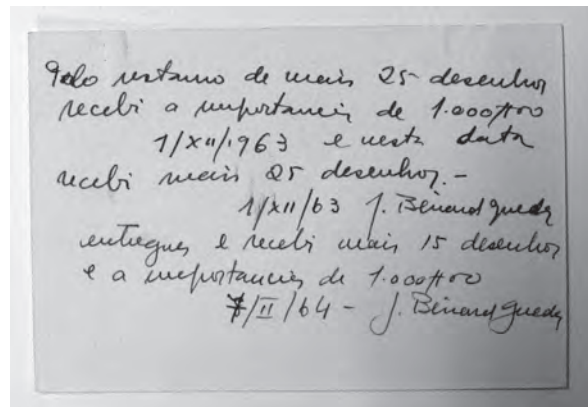 Pelo restauro de mais 25 desenhos
recebi a importancia de 1.000$00
1/XII/1963 e nesta data
recebi mais 25 desenhos. -
1/XII/63 J. Bénard Guedes
entreguei e recebi mais 15 desenhos
e a importancia de 1.000$00
7/II/64 - J. Bénard Guedes